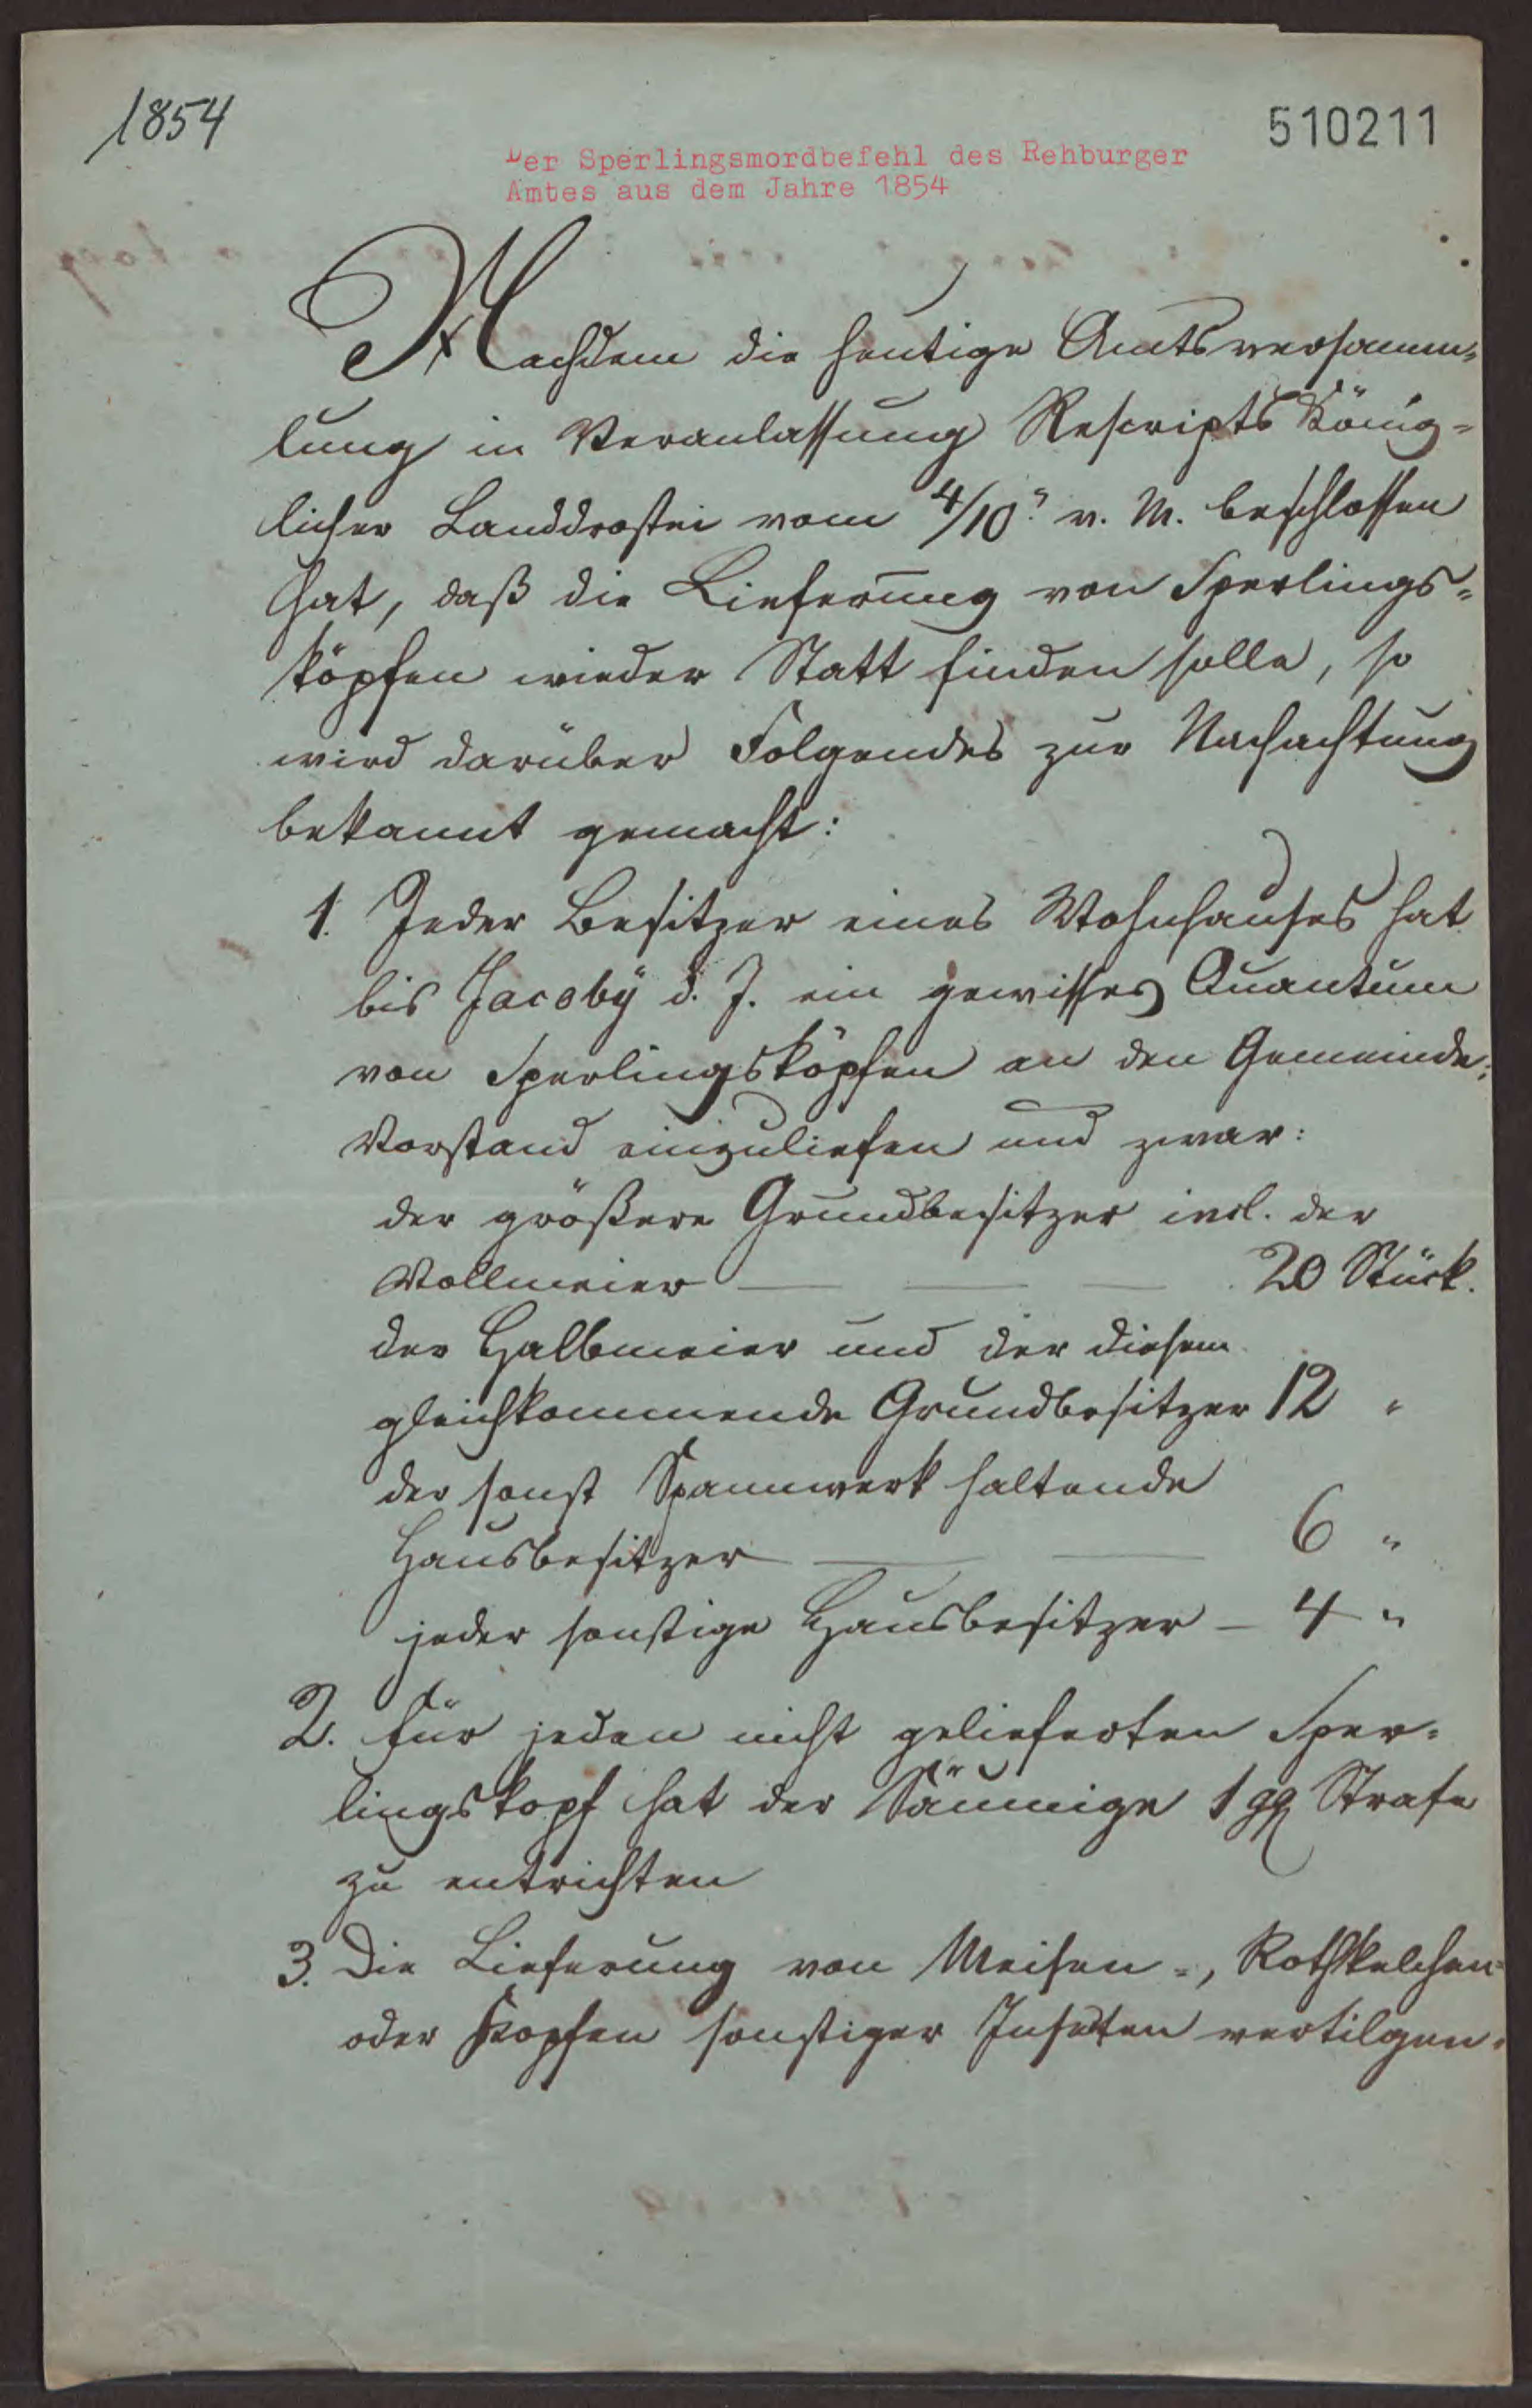 1854
510211
Der Sperlingsmordbefehl des Rehburger
Amtes aus dem Jahre 1854
Nachdem die heutige Amtsversamm-
lung in Veranlassung Rescripts König-
licher Landdrostei vom 4/10. v. M. beschlossen
hat, daß die Lieferung von Sperlings-
köpfen wieder Statt finden solle, so
wird darüber Folgendes zur Nachachtung
bekannt gemacht:
1. Jeder Besitzer eines Wohnhauses hat
bis Jacoby d. J. ein gewisses Quantum
von Sperlingsköpfen an den Gemeinde-
Vorstand einzuliefen und zwar:
der größere Grundbesitzer incl. der
Vollmeier — — — 20 Stück.
der Halbmeier und der diesem
gleichkommende Grundbesitzer 12 "
der sonst Spannwerk haltende
Hausbesitzer — — 6 "
jeder sonstige Hausbesitzer — 4 "
2. Für jeden nicht gelieferten Sper-
lingskopf hat der Säumige 1 ggr Strafe
zu entrichten
3. Die Lieferung von Meisen-, Rothkelchen-
oder Köpfen sonstiger Insecten vertilgen-